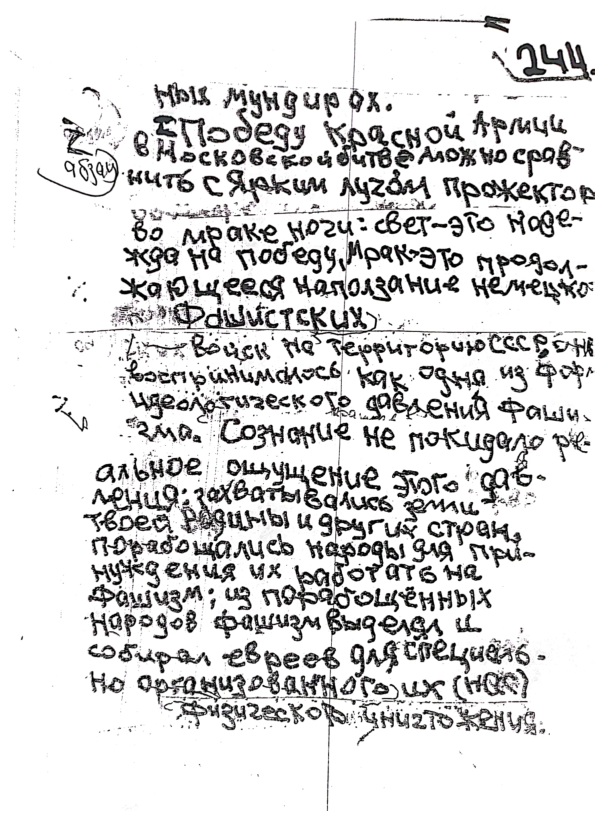 244.
ных мундирах.
Z Победу Красной Армии
абзац
в Московской битве можно срав-
нить с ярким лучом прожектор
во мраке ночи: свет-это наде-
жда на победу, мрак-это продол-
жающееся наползание немецко-
фашистских
войск на территорию СССР,
воспринималось как одна из форм
идеологического давления фаши-
зма. Сознание не покидало ре-
альное ощущение этого дав-
ления: захватывались земли
твоей Родины и других стран,
порабощались народы для при-
нуждения их работать на
фашизм; из порабощённых
народов фашизм выделял и
собирал евреев для специаль-
но организованного их (нас)
физического уничтожения.